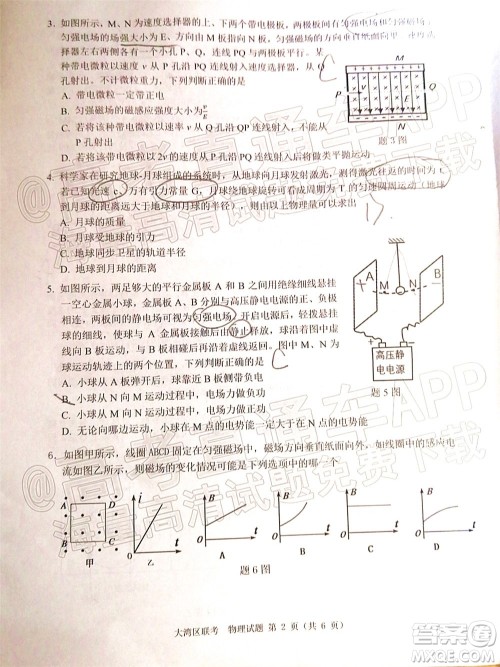 3. 如图所示，M、N为速度选择器的上、下两个带电极板，两极板间有匀强电场和匀强磁场。
匀强电场的场强大小为E、方向由M板指向N板，匀强磁场的方向垂直纸面向里。速度选
择器左右两侧各有一个小孔P、Q，连线PQ与两极板平行。某
种带电微粒以速度v从P孔沿PQ连线射入速度选择器，从Q
孔射出。不计微粒重力，下列判断正确的是
A. 带电微粒一定带正电
B. 匀强磁场的磁感应强度大小为v/E
C. 若将该种带电微粒以速率v从Q孔沿QP连线射入，不能从
P孔射出
D. 若将该带电微粒以2v的速度从P孔沿PQ连线射入后将做类平抛运动
题3图
4. 科学家在研究地球-月球组成的系统时，从地球向月球发射激光，测得激光往返的时间为t.
若已知光速c，万有引力常量G，月球绕地球旋转可看成周期为T的匀速圆周运动（地球
到月球的距离远大于地球和月球的半径），则由以上物理量可以求出
A. 月球的质量
B. 月球受地球的引力
C. 地球同步卫星的轨道半径
D. 地球到月球的距离
5. 如图所示，两足够大的平行金属板A和B之间用绝缘细线悬挂
一空心金属小球，A、B分别与高压静电电源的正负极相连接
起来，两板间的静电场可视为匀强电场，开启电源后，轻拨悬挂
球的细线，使小球与A金属板接触后由静止释放，
球向B板运动，与B板接触后将沿着虚线返回。图中M、N为
运动轨迹上的两个点。下列判断正确的是
A. 小球从A板弹开后，到B板的过程中，电势能增加
B. 小球从N向M运动过程中，电场力做负功
C. 小球从N到M运动过程中，电场力做正功
D. 无论小球如何运动，在M点的电势能都大于在N点的电势能
A
B
M
N
高压静
电电源
题5图
6. 如图甲所示，线圈ABCD固定于匀强磁场中，磁场方向垂直纸面向外，如线圈中的感应电
流如图乙所示，则磁场的变化情况可能是下列选项中的哪一个
甲
A
B
C
D
题6图
大湾区联考 物理试题 第 2 页（共 6 页）
答案圈
MXQE.COM